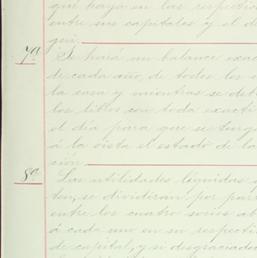 que haya en las respectivo
entre sus capitales y el de
gen.
7ª
Se hará un balance exac
de cada año, de todos los
la casa y mientras se deb
los libros con toda exacti
el día para que se tenga
á la vista el estado de la
ción
8ª
Las utilidades líquidas
ten, se dividirán por par
entre los cuatro socios ab
á cada uno en su respecti
de capital, y si desgraciadam